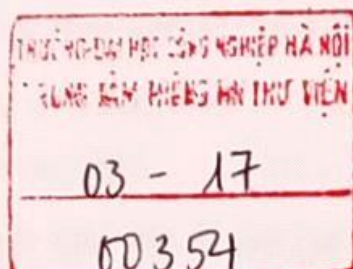 TRƯỜNG ĐẠI HỌC CÔNG NGHIỆP HÀ NỘI
TRUNG TÂM THÔNG TIN THƯ VIỆN
03 - 17
00354